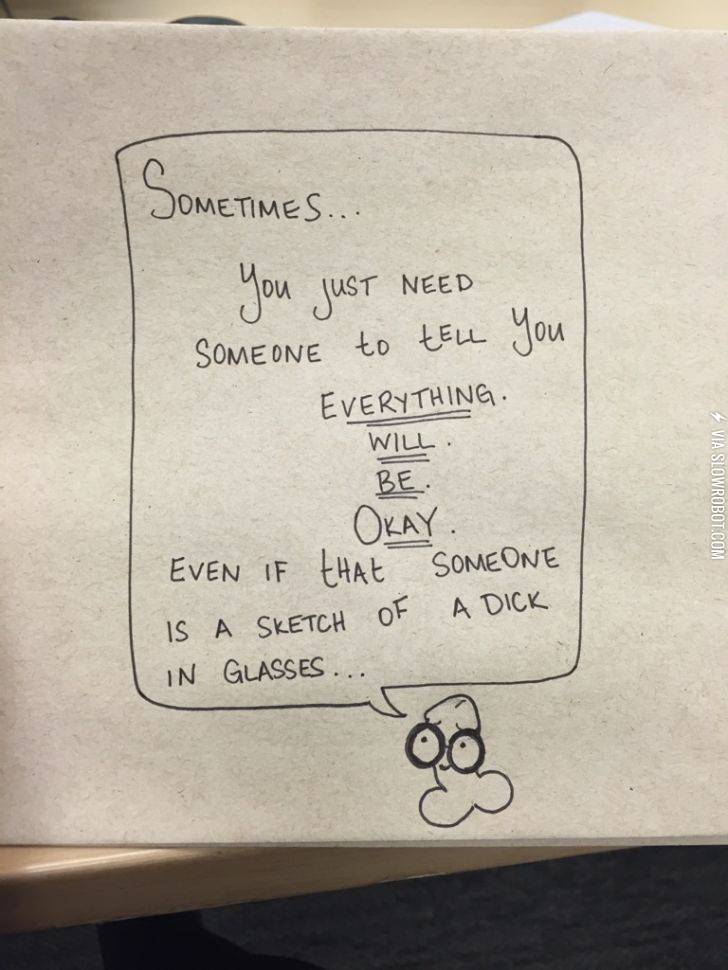 SOMETIMES...
You JUST NEED
SOMEONE to tELL You
EVERYTHING.
WILL.
BE.
OKAY.
EVEN IF tHAt SOMEONE
IS A SKETCH OF A DICK
IN GLASSES...
VIA SLOWROBOT.COM